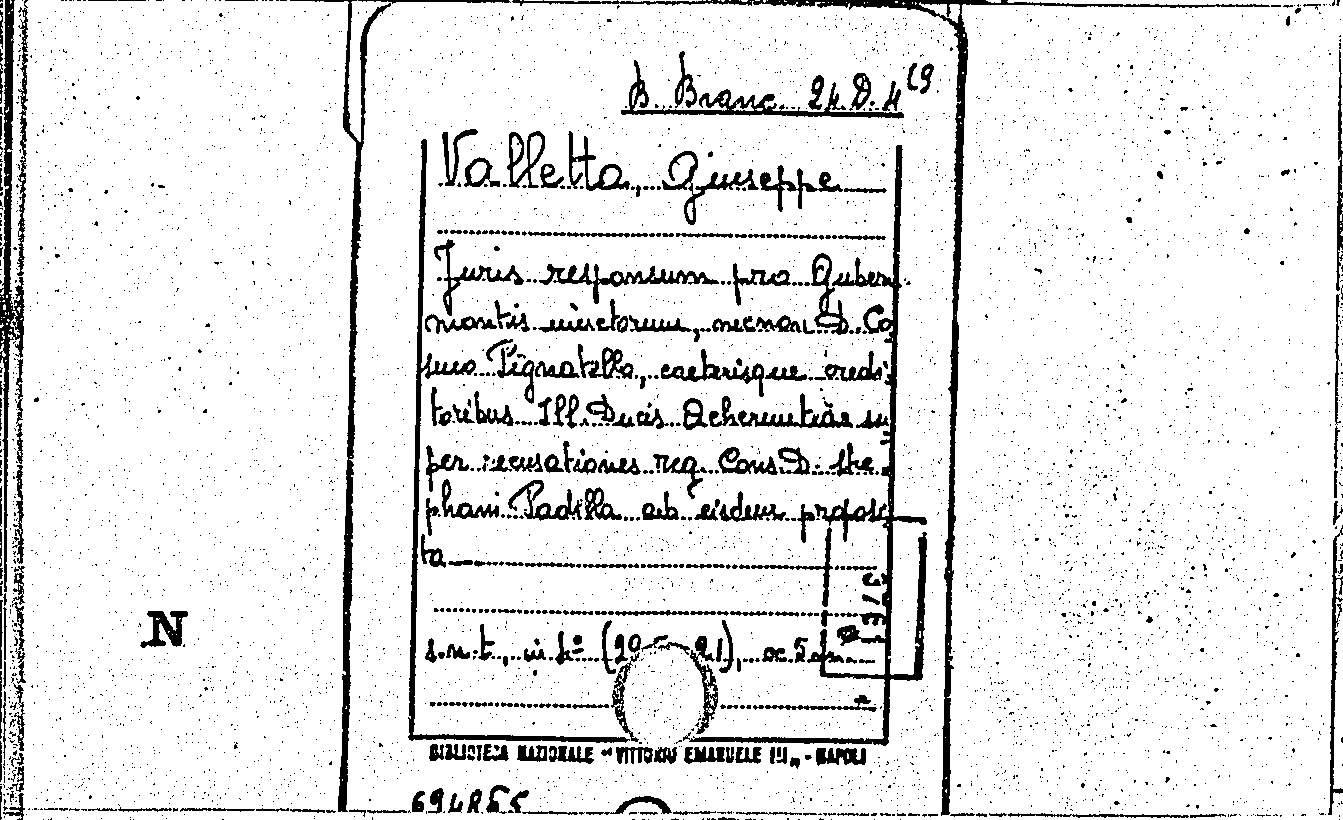 B. Branc. 24.D.4 (9
Valletta, Giuseppe
Juris responsum pro Guber
mantis introitum, necnon D. Co
smo Pignatello, caeterisque credi
toribus Ill. Ducis Acheruntiae su
per recusationes reg. Cons. D. Ste
phani Padilla ab eisdem proposi
ta
s.n.t., in f.º 21), cc.5
BIBLIOTECA NAZIONALE "VITTORIO EMANUELE III„ - NAPOLI
N
694865